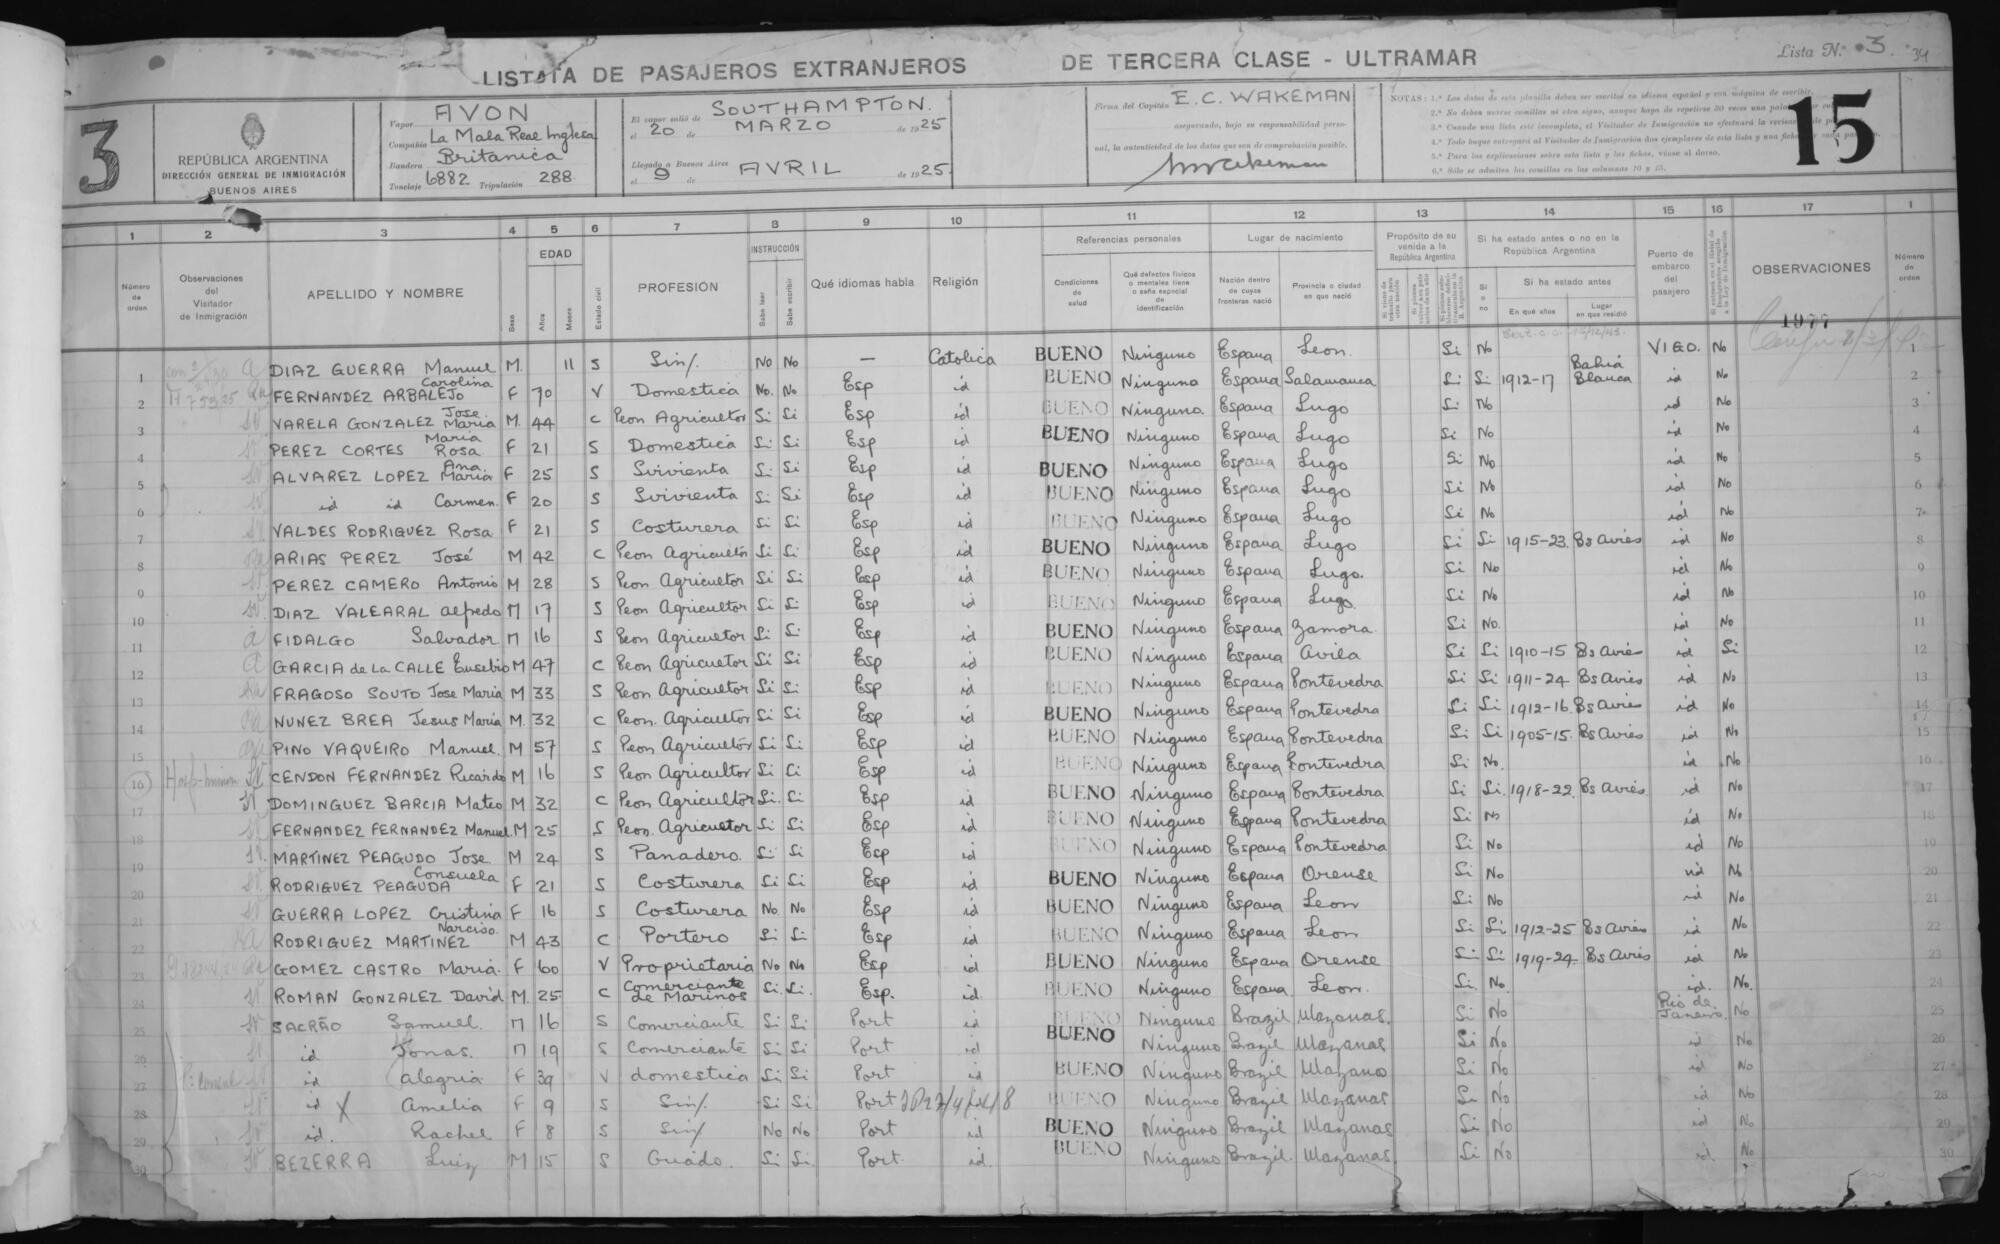 LISTA DE PASAJEROS EXTRANJEROS DE TERCERA CLASE - ULTRAMAR
Lista N.º 3. 34
3
REPÚBLICA ARGENTINA
DIRECCIÓN GENERAL DE INMIGRACIÓN
BUENOS AIRES
Vapor AVON
Compañía La Mala Real Inglesa
Bandera Britanica
Tonelaje 6882 Tripulación 288
El vapor salió de SOUTHAMPTON.
el 20 de MARZO de 1925
Llegado a Buenos Aires
el 9 de AVRIL de 1925.
Firma del Capitán E. C. WAKEMAN
asegurando, bajo su responsabilidad perso-
nal, la autenticidad de los datos que son de comprobación posible.
NOTAS: 1.ª Los datos de esta planilla deben ser escritos en idioma español y con máquina de escribir.
15
1 2 3 4 5 6 7 8 9 10 11 12 13 14 15 16 17 1
Número de orden
Observaciones del Visitador de Inmigración
APELLIDO Y NOMBRE
Sexo
EDAD
Años Meses
Estado civil
PROFESIÓN
INSTRUCCIÓN
Sabe leer Sabe escribir
Qué idiomas habla
Religión
Referencias personales
Condiciones de salud
Qué defectos físicos o mentales tiene o seña especial de identificación
Lugar de nacimiento
Nación dentro de cuyas fronteras nació
Provincia o ciudad en que nació
Propósito de su venida a la República Argentina
Si ha estado antes o no en la República Argentina
Si o no
Si ha estado antes
En qué años
Lugar en que residió
Puerto de embarco del pasajero
OBSERVACIONES
Número de orden
1977
1 DIAZ GUERRA Manuel M. 11 S Sin/. No No — Catolica BUENO Ninguno Espana Leon. Si No VIGO. No 1
2 FERNANDEZ ARBALEJO Carolina F 70 V Domestica No. No Esp id BUENO Ninguno Espana Salamanca Si Si 1912-17 Bahia Blanca id No 2
3 VARELA GONZALEZ Jose Maria M. 44 C Peon Agricultor Si Si Esp id BUENO Ninguno Espana Lugo Si No id No 3
4 PEREZ CORTES Maria Rosa F 21 S Domestica Si Si Esp id BUENO Ninguno Espana Lugo Si No id No 4
5 ALVAREZ LOPEZ Ana Maria F 25 S Svivienta Si Si Esp id BUENO Ninguno Espana Lugo Si No id No 5
6 id id Carmen. F 20 S Svivienta Si Si Esp id BUENO Ninguno Espana Lugo Si No id No 6
7 VALDES RODRIGUEZ Rosa F 21 S Costurera Si Si Esp id BUENO Ninguno Espana Lugo Si No id No 7
8 ARIAS PEREZ José M 42 C Peon Agricultor Si Si Esp id BUENO Ninguno Espana Lugo Si Si 1915-23. Bs Aries id No 8
9 PEREZ CAMERO Antonio M 28 S Peon Agricultor Si Si Esp id BUENO Ninguno Espana Lugo. Si No id No 9
10 DIAZ VALEARAL alfredo M 17 S Peon Agricultor Si Si Esp id BUENO Ninguno Espana Lugo Si No id No 10
11 FIDALGO Salvador M 16 S Peon Agricultor Si Si Esp id BUENO Ninguno Espana Zamora. Si No. id No 11
12 GARCIA de La CALLE Eusebio M 47 C Peon Agricultor Si Si Esp id BUENO Ninguno Espana Avila Si Si 1910-15 Bs Aries id Si 12
13 FRAGOSO SOUTO Jose Maria M 33 S Peon Agricultor Si Si Esp id BUENO Ninguno Espana Pontevedra Si Si 1911-24 Bs Aries id No 13
14 NUNEZ BREA Jesus Maria M. 32 C Peon. Agricultor Si Si Esp id BUENO Ninguno Espana Pontevedra Si Si 1912-16. Bs Aries id No 14
15 PINO VAQUEIRO Manuel. M 57 S Peon Agricultor Si Si Esp id BUENO Ninguno Espana Pontevedra Si Si 1905-15. Bs Aries id No 15
16 CENDON FERNANDEZ Ricardo M 16 S Peon Agricultor Si Si Esp id BUENO Ninguno Espana Pontevedra Si No. id No 16
17 DOMINGUEZ BARCIA Mateo M 32 C Peon Agricultor Si. Si Esp id BUENO Ninguno Espana Pontevedra Si Si. 1918-22. Bs Aries id No 17
18 FERNANDEZ FERNANDEZ Manuel. M 25 S Peon. Agricultor Si Si Esp id BUENO Ninguno Espana Pontevedra Si No id No 18
19 MARTINEZ PEAGUDO Jose M 24 S Panadero. Si Si Esp id BUENO Ninguno Espana Pontevedra Si No id No 19
20 RODRIGUEZ PEAGUDA Consuela F 21 S Costurera Si Si Esp id BUENO Ninguno Espana Orense Si No id No 20
21 GUERRA LOPEZ Cristina F 16 S Costurera No. No Esp id BUENO Ninguno Espana Leon Si No id No 21
22 RODRIGUEZ MARTINEZ Narciso. M 43 C Portero Si Si Esp id BUENO Ninguno Espana Leon Si Si 1912-25 Bs Aries id No 22
23 GOMEZ CASTRO Maria. F 60 V Proprietaria No No Esp id BUENO Ninguno Espana Orense Si Si 1919-24. Bs Aries id No 23
24 ROMAN GONZALEZ David M. 25 C Comerciante de Marinos Si. Si. Esp. id. BUENO Ninguno Espana. Leon. Si. No. id. No. 24
25 SACRÃO Samuel. M 16 S Comerciante Si Si Port id BUENO Ninguno Brazil Mazanas. Si No Rio de Janeiro. No 25
26 id Jonas. M 19 S Comerciante Si Si Port id BUENO Ninguno Brazil Mazanas Si No id No 26
27 id alegria F 39 V domestica Si Si Port id BUENO Ninguno Brazil Mazanas Si No id No 27
28 id X Amelia F 9 S Sin/. Si Si Port BUENO Ninguno Brazil Mazanas Si No id No 28
29 id. Rachel F 8 S Sin/ No No Port id BUENO Ninguno Brazil Mazanas Si No id No 29
30 BEZERRA Luiz M 15 S Criado. Si Si. Port. id. BUENO Ninguno Brazil. Mazanas. Si No id. No 30